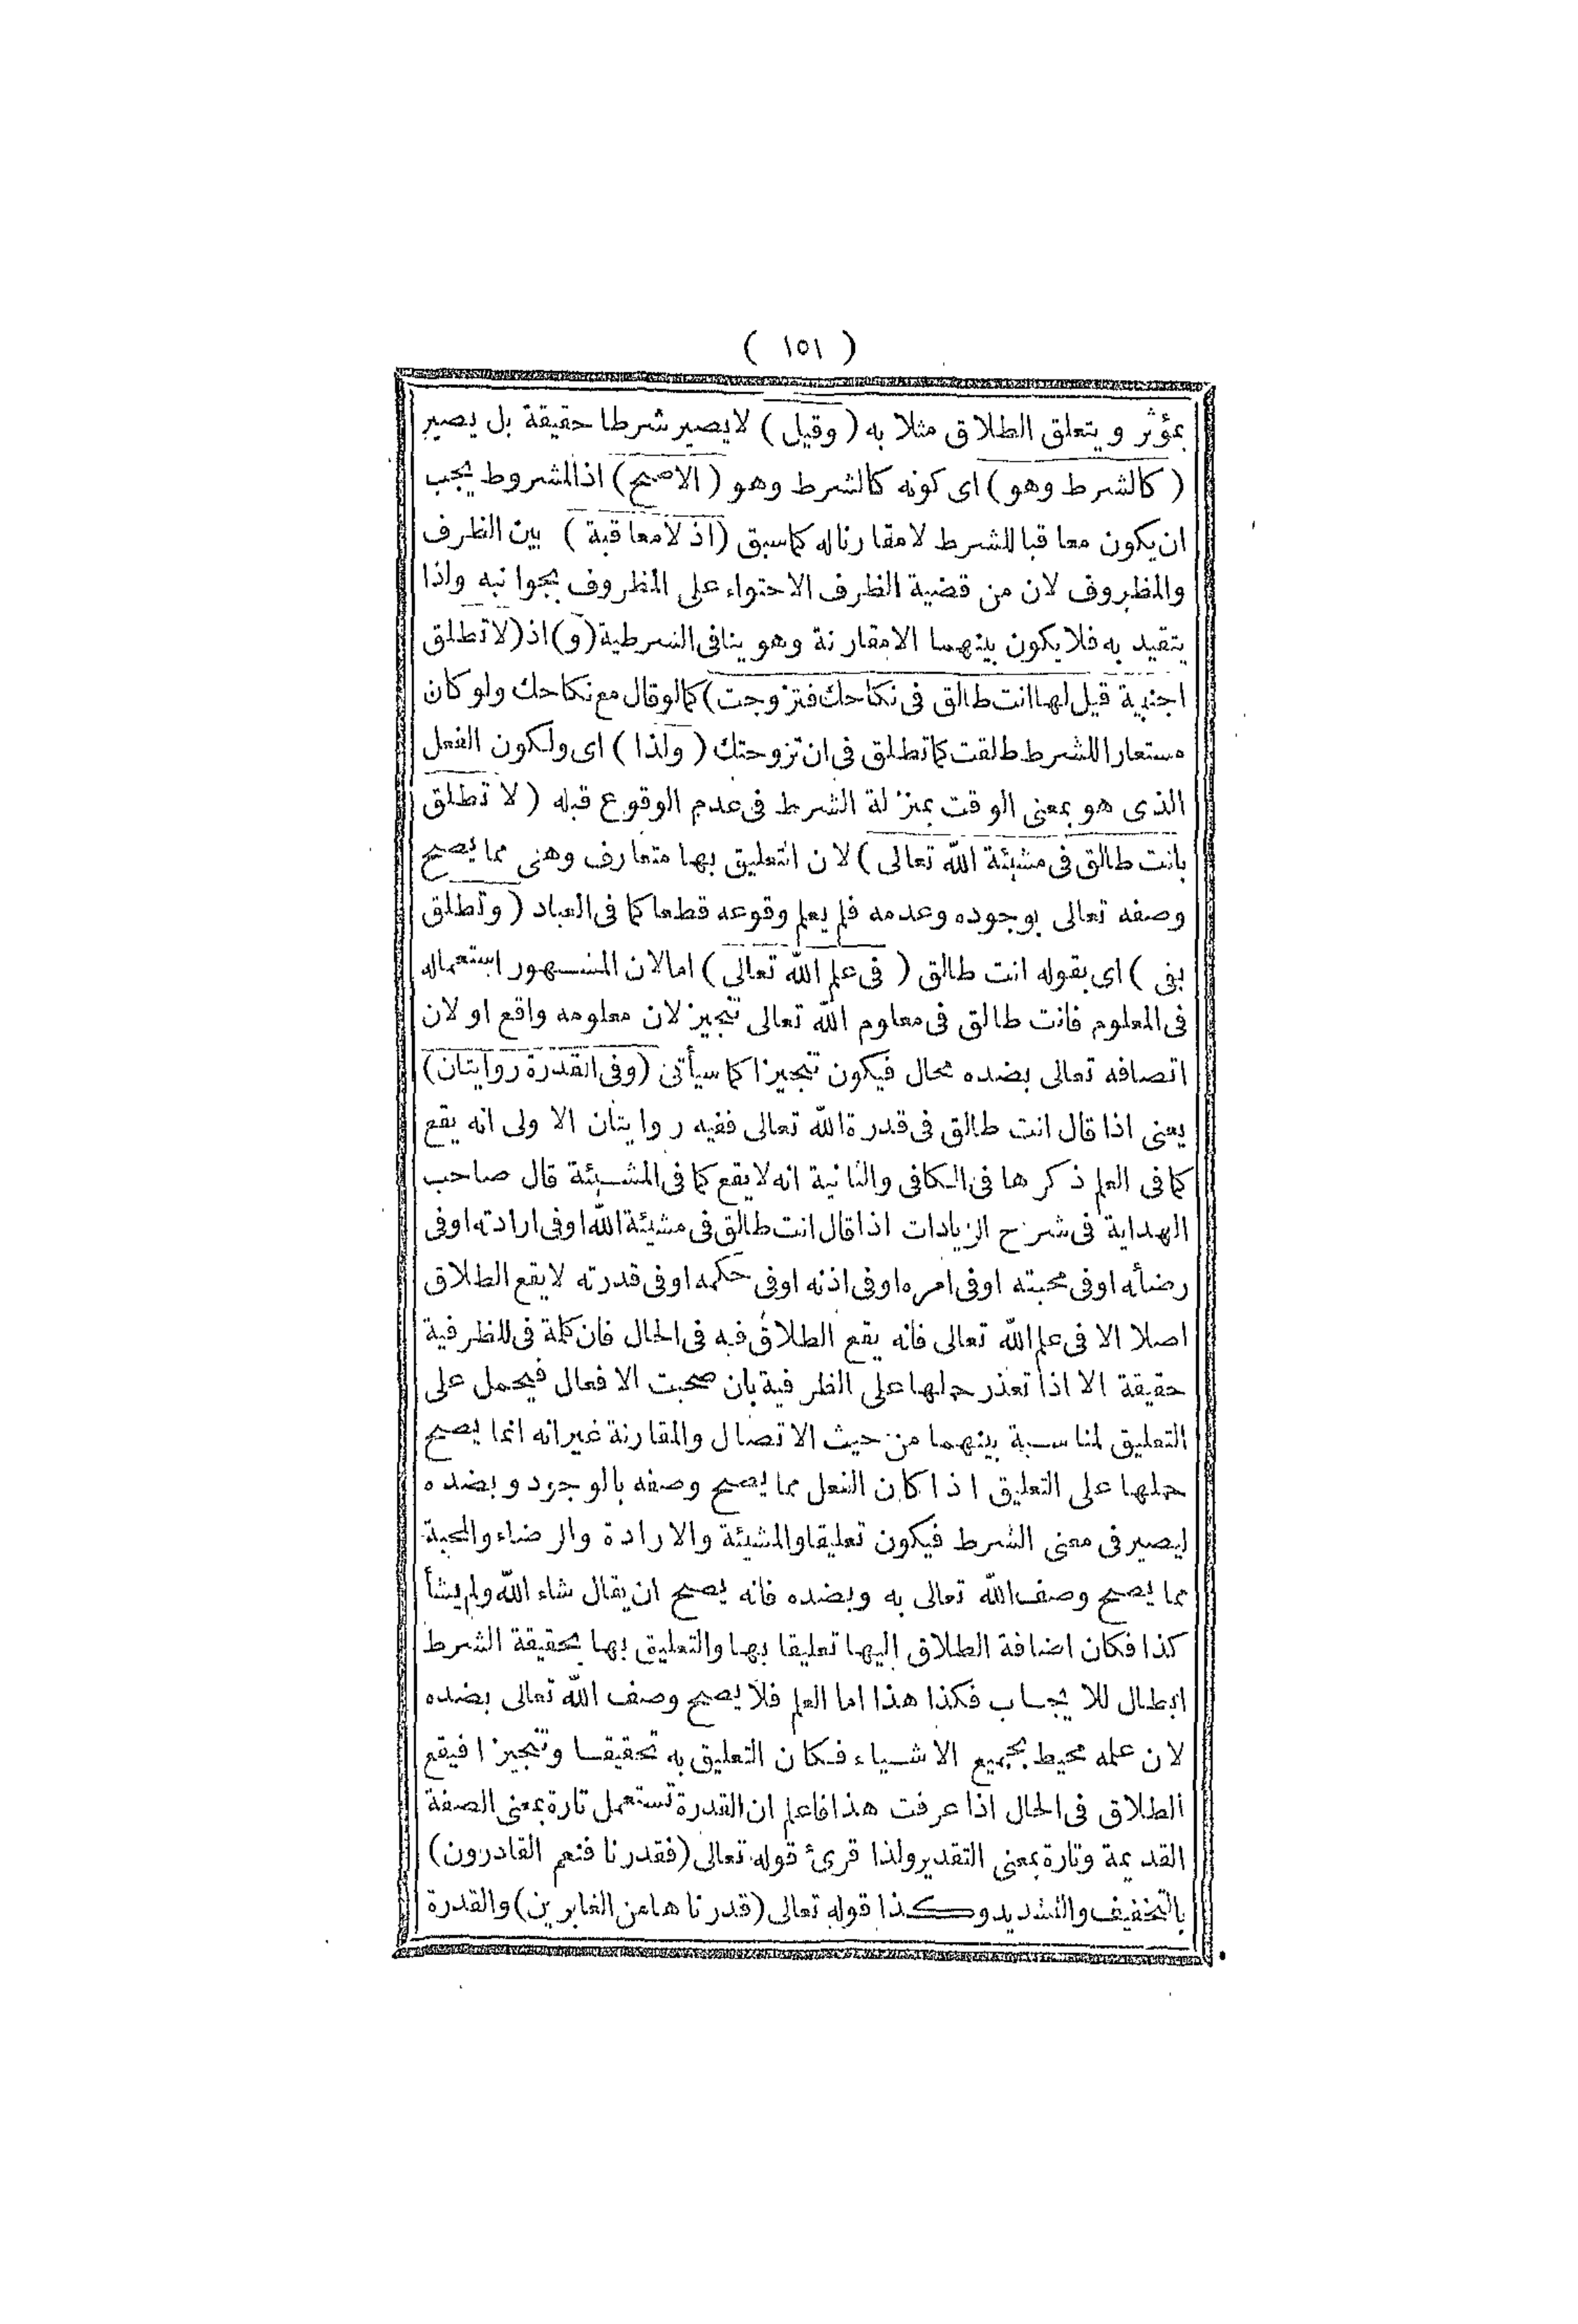 ( ١٥١ )
بمؤثر ويتعلق الطلاق مثلا به ( وقيل ) لا يصير شرطا حقيقة بل يصير
( كالشرط وهو ) اى كونه كالشرط وهو ( الاصح ) اذ المشروط يجب
ان يكون معاقبا للشرط لا مقارنا له كما سبق ( اذ لا معاقبة ) بين الظرف
والمظروف لان من قضية الظرف الاحتواء على المظروف بجوانبه ولذا
يتقيد به فلا يكون بينهما الا مقارنة وهو ينافى الشرطية ( و ) اذ ( لا تطلق
اجنبية قيل لها انت طالق فى نكاحك فتزوجت ) كما لو قال مع نكاحك ولو كان
مستعارا للشرط طلقت كما تطلق فى ان تزوجتك ( ولذا ) اى ولكون الفعل
الذى هو بمعنى الوقت بمنزلة الشرط فى عدم الوقوع قبله ( لا تطلق
بانت طالق فى مشيئة الله تعالى ) لان التعليق بها متعارف وهى مما يصح
وصفه تعالى بوجوده وعدمه فلم يعلم وقوعه قطعا كما فى العباد ( وتطلق
بفى ) اى بقوله انت طالق ( فى علم الله تعالى ) اما لان المشهور استعماله
فى المعلوم فانت طالق فى معلوم الله تعالى تنجيز لان معلومه واقع او لان
اتصافه تعالى بضده محال فيكون تنجيزا كما سيأتى ( وفى القدرة روايتان )
يعنى اذا قال انت طالق فى قدرة الله تعالى ففيه روايتان الاولى انه يقع
كما فى العلم ذكرها فى الكافى والثانية انه لا يقع كما فى المشيئة قال صاحب
الهداية فى شرح الزيادات اذا قال انت طالق فى مشيئة الله او فى ارادته او فى
رضائه او فى محبته او فى امره او فى اذنه او فى حكمه او فى قدرته لا يقع الطلاق
اصلا الا فى علم الله تعالى فانه يقع الطلاق فيه فى الحال فان كلمة فى للظرفية
حقيقة الا اذا تعذر حملها على الظرفية بان صحبت الافعال فيحمل على
التعليق لمناسبة بينهما من حيث الاتصال والمقارنة غير انه انما يصح
حملها على التعليق اذا كان الفعل مما يصح وصفه بالوجود وبضده
ليصير فى معنى الشرط فيكون تعليقا والمشيئة والارادة والرضاء والمحبة
مما يصح وصف الله تعالى به وبضده فانه يصح ان يقال شاء الله ولم يشأ
كذا فكان اضافة الطلاق اليها تعليقا بها والتعليق بها بحقيقة الشرط
ابطال للايجاب فكذا هذا اما العلم فلا يصح وصف الله تعالى بضده
لان علمه محيط بجميع الاشياء فكان التعليق به تحقيقا وتنجيزا فيقع
الطلاق فى الحال اذا عرفت هذا فاعلم ان القدرة تستعمل تارة بمعنى الصفة
القديمة وتارة بمعنى التقدير ولذا قرئ قوله تعالى ( فقدرنا فنعم القادرون )
بالتخفيف والتشديد وكذا قوله تعالى ( قدرناها من الغابرين ) والقدرة